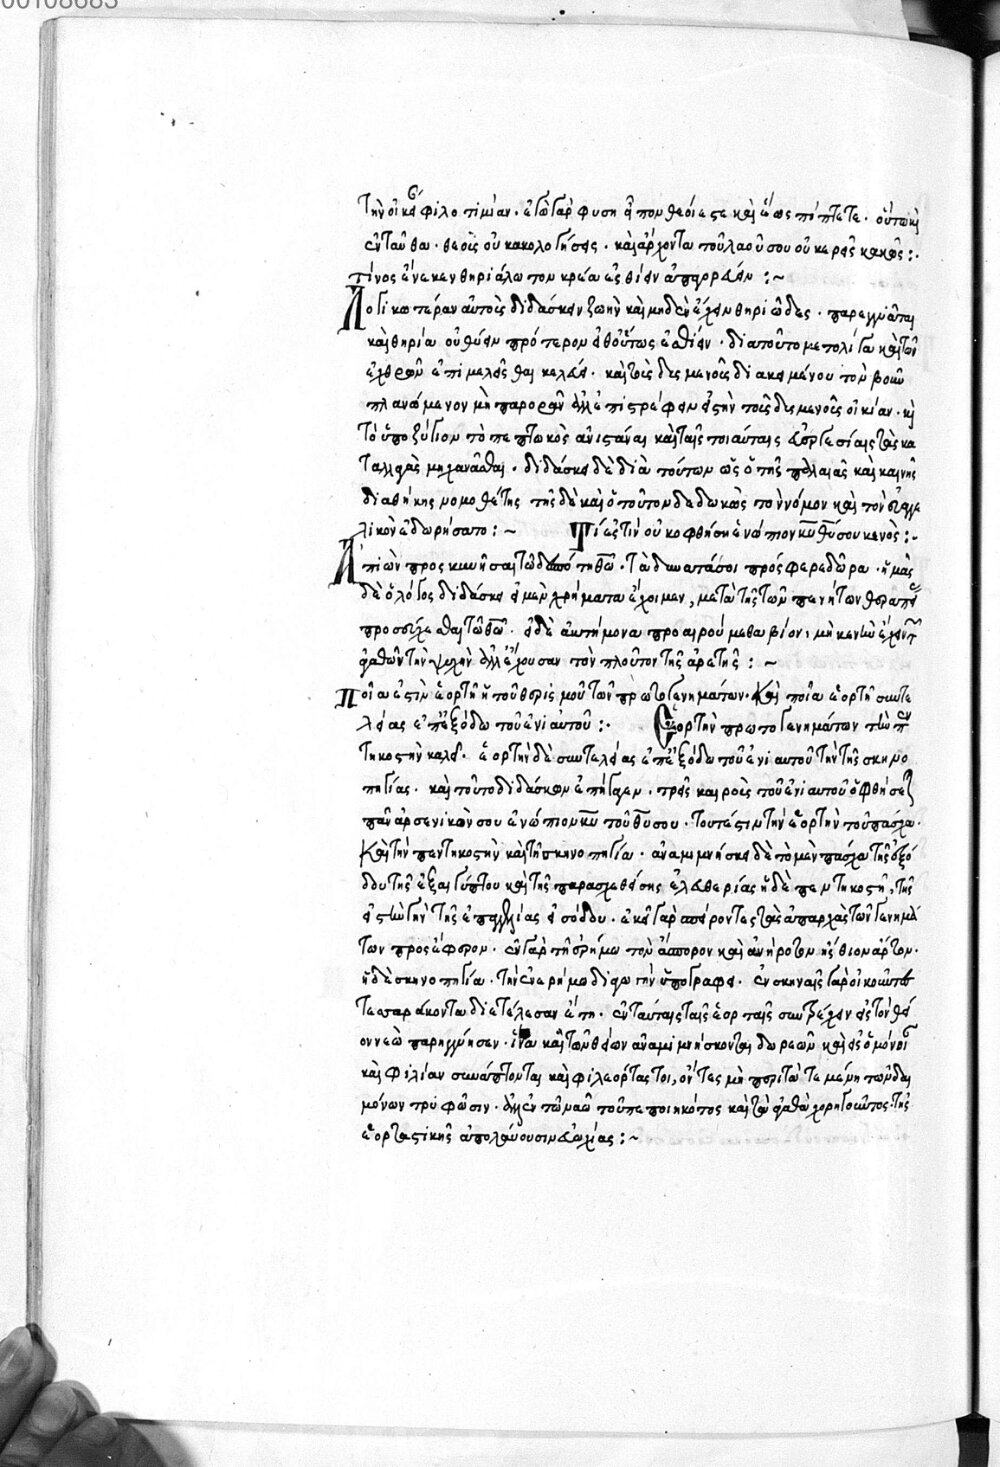 00108683
τὴν οἰκεί φιλοτιμίαν. ἐγὼ γάρ φησιν εἶπον θεοί ἐστε καὶ ἕως πίπτετε. οὕτω καὶ
ἐνταῦθα. θεοὺς οὐ κακολογήσεις. καὶ ἄρχοντα τοῦ λαοῦ σου οὐκ ἐρεῖς κακῶς:.
τίνος ἕνεκεν θηριάλωτον κρέα ἐσθίειν ἀπαγορεύει:~
Λογικωτέραν αὐτοὺς διδάσκει ζωὴν καὶ μηδὲν ἔχειν θηριῶδες. παρεγγυᾶται
καὶ θηρία οὐ θύειν πρότερον εἶθ' οὕτως ἐσθίειν. διὰ τοῦτο μέντοι γε καὶ τῶν
ἐχθρῶν ἐπιμελεῖσθαι κελεύει. καὶ τοῖς δυσμενῶς διακειμένου τὸν βοῦν
πλανώμενον μὴ παρορᾶν ἀλλ' ἐπιστρέφειν εἰς τὴν τοῦ δυσμενοῦς οἰκίαν. καὶ
τὸ ὑποζύγιον τὸ πεπτωκὸς ἀνιστάναι καὶ ταῖς τοιαύταις εὐεργεσίαις τὰς κα
ταλλαγὰς μηχανᾶσθαι. διδάσκει δὲ διὰ τούτων ὡς ὁ τῆς παλαιᾶς καὶ καινῆς
διαθήκης νομοθέτης τῆς δὲ καὶ ὁ τοῦτον δεδωκὼς τὸν νόμον καὶ τὸν εὐαγγε
λικὸν ἐδωρήσατο:~ Τί ἐστιν οὐκ ὀφθήσῃ ἐνώπιον κυ θυ σου κενός:.
Ἀπιὼν προσκυνῆσαι τῷ δεσπότῃ θῶ. τὰ δυνατά σοι πρόσφερε δῶρα. ἡμᾶς
δὲ ὁ λόγος διδάσκει εἰ μὲν χρήματα ἔχοιμεν, μετὰ τῆς τῶν πενήτων θεραπεί
προσεύχεσθαι τῷ θῶ. εἰ δὲ ἀκτήμονα προαιρούμεθα βίον, μὴ κενὴν ἔχειν τ
ἀγαθῶν τὴν ψυχὴν ἀλλ' ἔχουσαν τὸν πλοῦτον τῆς ἀρετῆς:~
Ποία ἐστὶν ἑορτὴ ἡ τοῦ θερισμοῦ τῶν πρωτογενημάτων. Καὶ ποία ἑορτὴ συντε
λείας ἐπ' ἐξόδῳ τοῦ ἐνιαυτοῦ:. Ἑορτὴν πρωτογενημάτων τὴν πεν
τηκοστὴν καλεῖ. ἑορτὴν δὲ συντελείας ἐπ' ἐξόδῳ τοῦ ἐνιαυτοῦ τὴν τῆς σκηνο
πηγίας. καὶ τοῦτο διδάσκων ἐπήγαγεν. τρεῖς καιροὺς τοῦ ἐνιαυτοῦ ὀφθήσεται
πᾶν ἀρσενικόν σου ἐνώπιον κυ τοῦ θυ σου. τουτέστιν τὴν ἑορτὴν τοῦ πάσχα.
Καὶ τὴν πεντηκοστὴν καὶ τὴν σκηνοπηγίαν. ἀναμιμνήσκει δὲ τὸ μὲν πάσχα τῆς ἐξό
δου τῆς ἐξ αἰγύπτου καὶ τῆς παρασχεθείσης ἐλευθερίας ἡ δὲ πεντηκοστὴ, τῆς
εἰς τὴν γῆν τῆς ἐπαγγελίας εἰσόδου. ἐκεῖ γὰρ σπείροντες τὰς ἀπαρχὰς τῶν γενημά
των προσέφερον. ἐν γὰρ τῇ ἐρήμῳ τὸν ἄσπορον καὶ ἀνήροτον ἤσθιον ἄρτον.
ἡ δὲ σκηνοπηγία. τὴν ἐν ἐρήμῳ διαγωγὴν ὑπογράφει. ἐν σκηναῖς γὰρ οἰκοῦντες
τεσσαράκοντα διετέλεσαν ἔτη. ἐν ταύταις ταῖς ἑορταῖς συντρέχειν εἰς τὸν θεῖ
ον νεὼ παρηγγύησεν. ἵνα καὶ τῶν θείων ἀναμιμνήσκονται δωρεῶν καὶ εἰς ὁμόνοι
καὶ φιλίαν συνάπτονται καὶ φιλεορτασταί, ὄντες μὴ περὶ τὰ τεμένη τῶν δαι
μόνων τρυφῶσιν. ἀλλ' ἐν τῷ ναῷ τοῦ πεποιηκότος καὶ τὰ ἀγαθὰ χορηγοῦντος. τῆς
ἑορταστικῆς ἀπολαύουσιν εὐωχίας:~